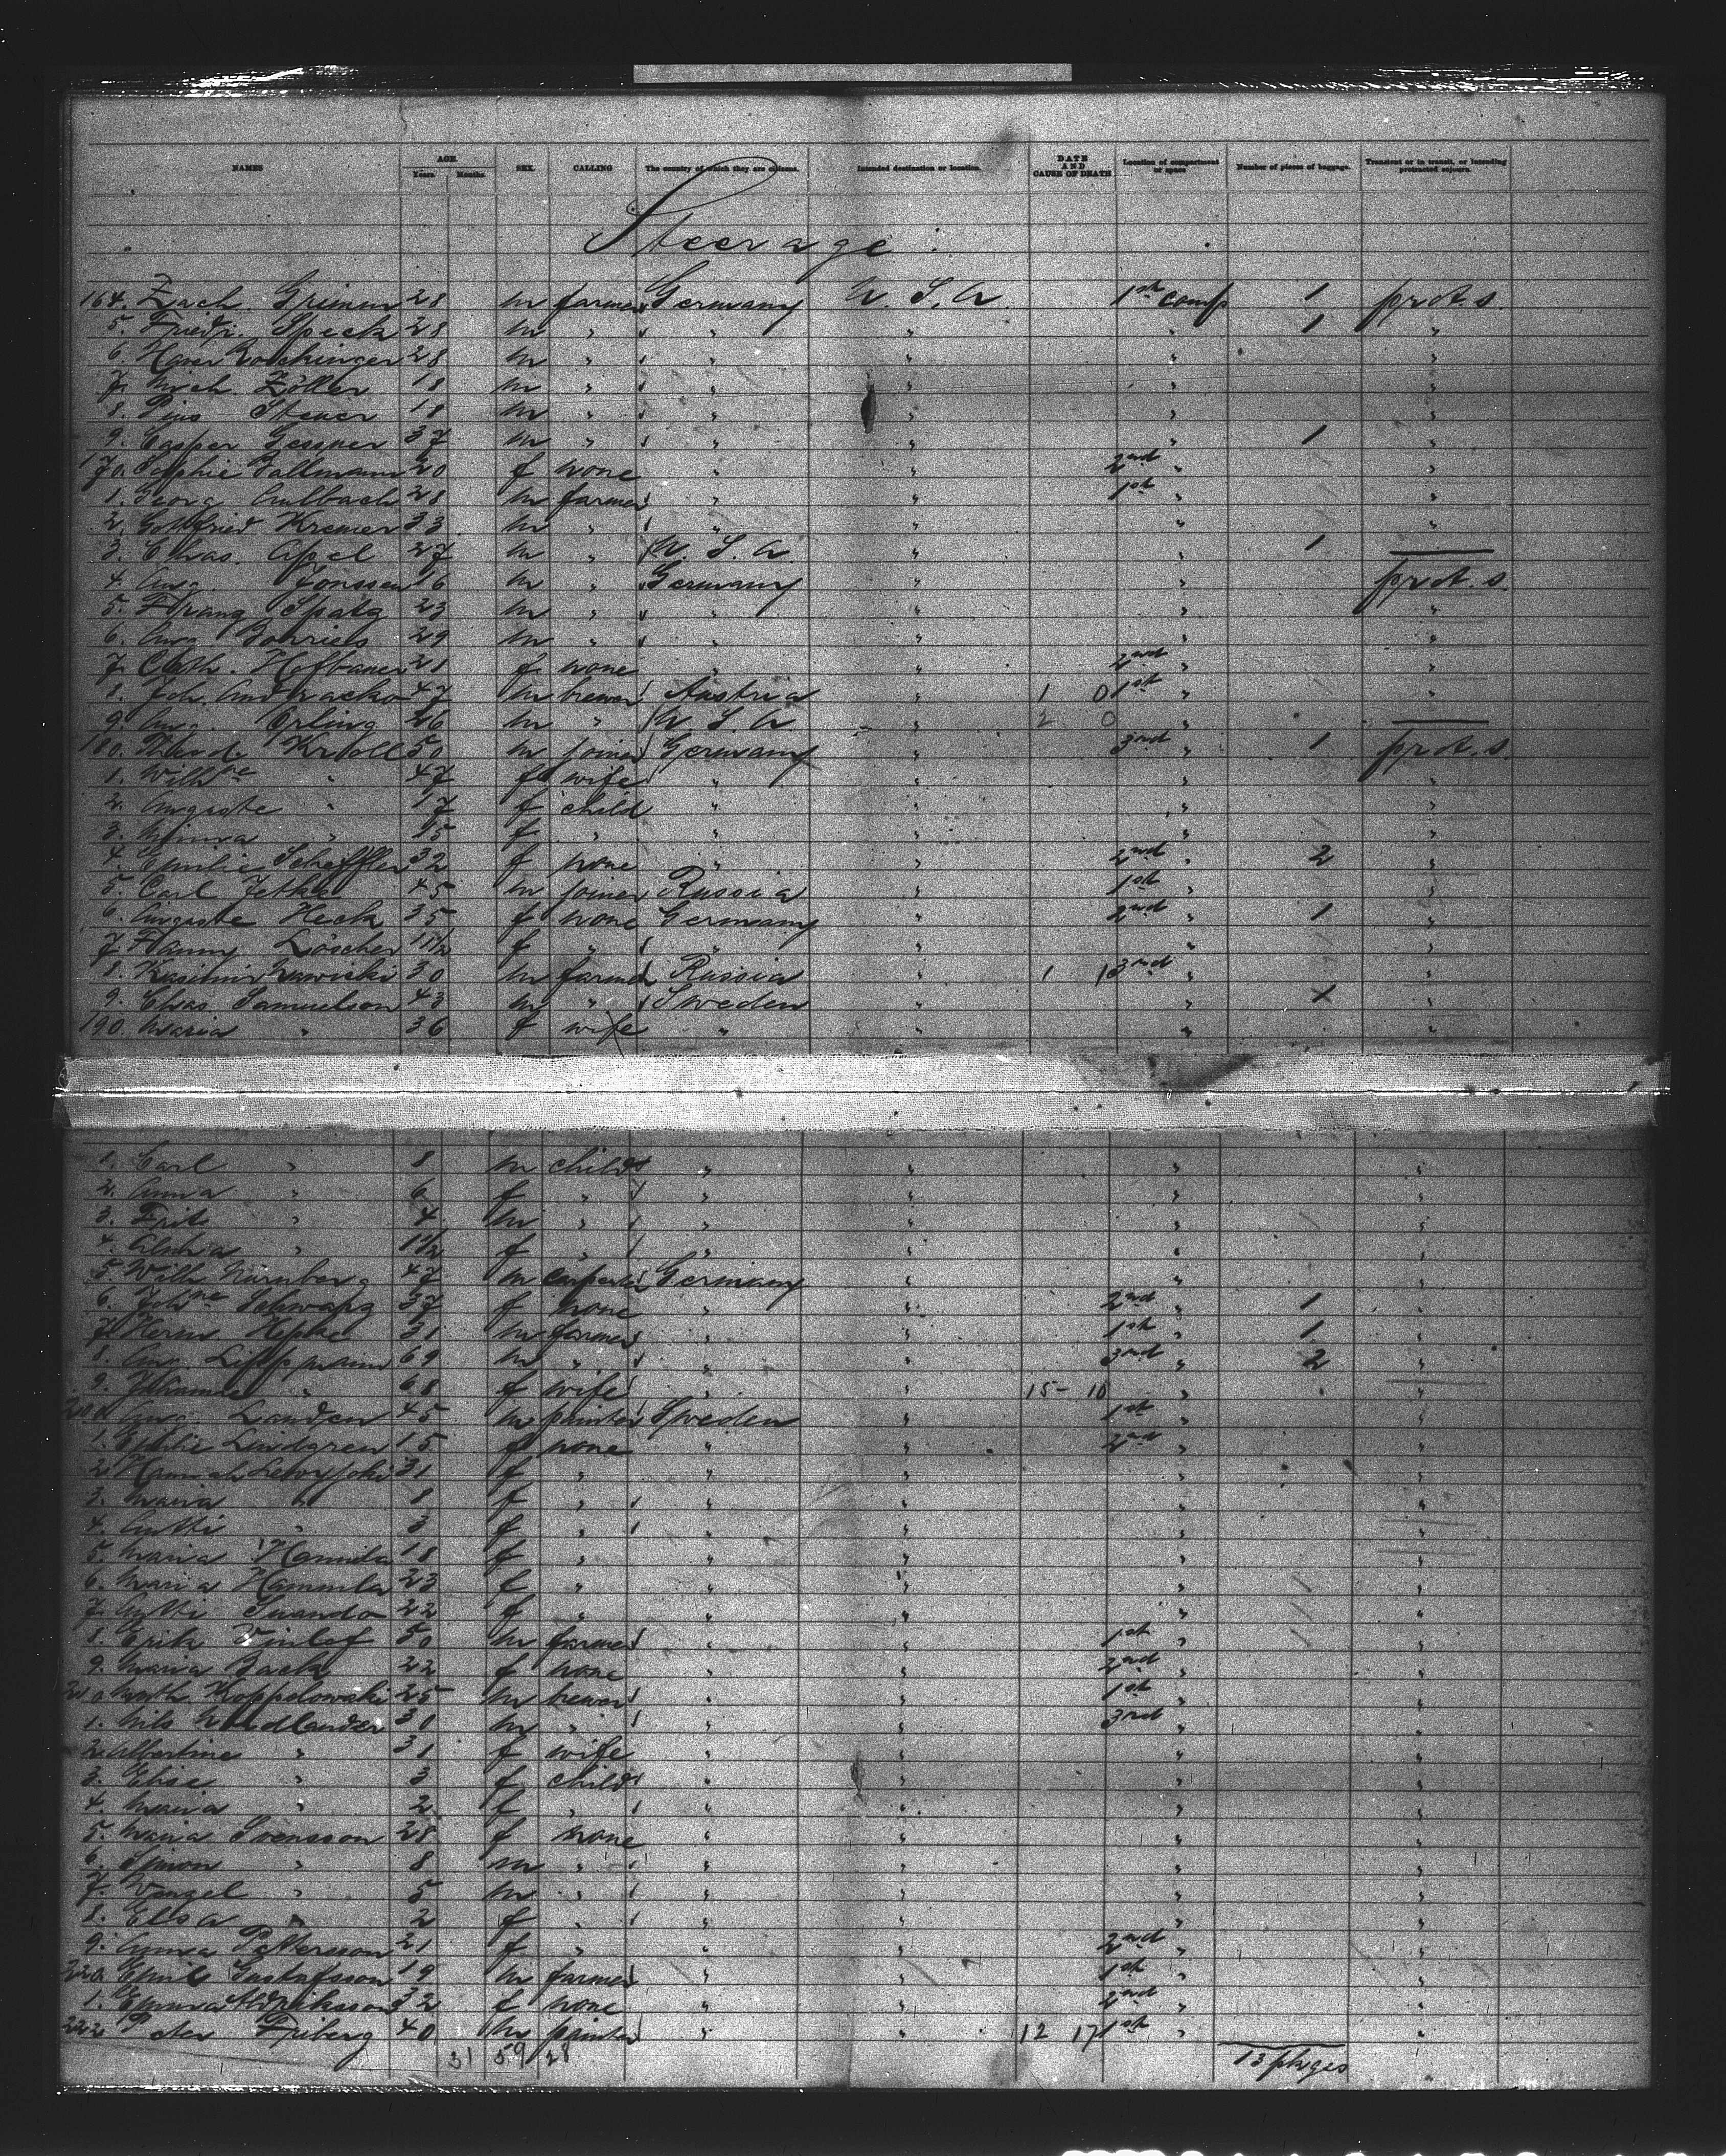 NAMES AGE. Years. Months. SEX. CALLING The country of which they are citizens. Intended destination or location. DATE AND CAUSE OF DEATH Location of compartment or space Number of pieces of baggage. Transient or in transit, or intending protracted sojourn.
Steerage.
164. Zach. Grimm 28 m farmer Germany U. S. A 1st comp 1 prot. s.
5. Friedr. Speck 28 m " " " " 1 "
6. 28 m " " " " "
7. Mich. Zöller 18 m " " " " "
8. Pius Steuer 18 m " " " " "
9. Casper Gessner 37 m " " " " 1 "
170. Sophie Fallmann 20 f none " " 2nd " "
1. Georg Aulbach 28 m farmer " " 1st " "
2. Gottfried Kremer 33 m " " " " "
3. Chas. Apel 27 m " U. S. A. " " 1 —
4. Aug. Jonssen 16 m " Germany " " prot. s
5. Franz Spatz 23 m " " " " "
6. Aug. 29 m " " " " "
7. Cath. Hofbauer 21 f none " " 2nd " "
8. Joh. 47 m brewer Austria " 1 0 1st " "
9. Aug. Orling 26 m " U. S. A. " 2 0 " —
180. Theod. Kroll 50 m joiner Germany " 3rd " 1 prot. s
1. Wilhne " 47 f wife " " " "
2. Auguste " 17 f child " " " "
3. Minna " 15 f " " " " "
4. Emilie Scheffler 32 f none " " 2nd " 2 "
5. Carl Jethe 45 m joiner Russia " 1st " "
6. Auguste Heck 35 f none Germany " 2nd " 1 "
7. Fanny Löscher 11/2 f " " " " "
8. Kasimir 30 m farmer Russia " 1 1 3rd " "
9. Chas. Samuelson 43 m " Sweden " " X "
190. Maria " 36 f wife " " " "
1. Carl " 8 m child " " " "
2. Anna " 6 f " " " " "
3. Fritz " 4 m " " " " "
4. " 11/2 f " " " " "
5. Wilh. Nürnberg 47 m carpenter Germany " " "
6. Johne Schwarz 37 f none " " 2nd " 1 "
7. Herm. Hepke 31 m farmer " " 1st " 1 "
8. Aug. Lippmann 69 m " " " 3rd " 2 "
9. " 68 f wife " " 15 - 10 " "
200 Aug. Landen 45 m painter Sweden " 1st " "
1. Emilie Lindgren 15 f none " " 2nd " "
2. Hannah 31 f " " " " "
3. Maria " 8 f " " " " "
4. " 3 f " " " " "
5. Maria 18 f " " " " "
6. Maria Hammila 23 f " " " " "
7. 22 f " " " " "
8. Erik 50 m farmer " " 1st " "
9. Maria Back 22 f none " " 2nd " "
Koppelowski 25 m brewer " " 1st " "
1. Nils 30 m " " " 3rd " "
2. Albertine " 31 f wife " " " "
3. Elise " 3 f child " " " "
4. Maria " 2 f " " " " "
5. Maria Svensson 28 f none " " " "
6. Simon " 8 m " " " " "
7. Wenzel " 5 m " " " " "
8. Elsa " 2 f " " " " "
9. Anna Pettersson 21 f " " " 2nd " "
220 Emil Gustafsson 19 m farmer " " 1st " "
1. Emma 32 f none " " 2nd " "
222 Peter Friberg 40 m painter " " 12 17 1st " "
31 59 28 13 pkges